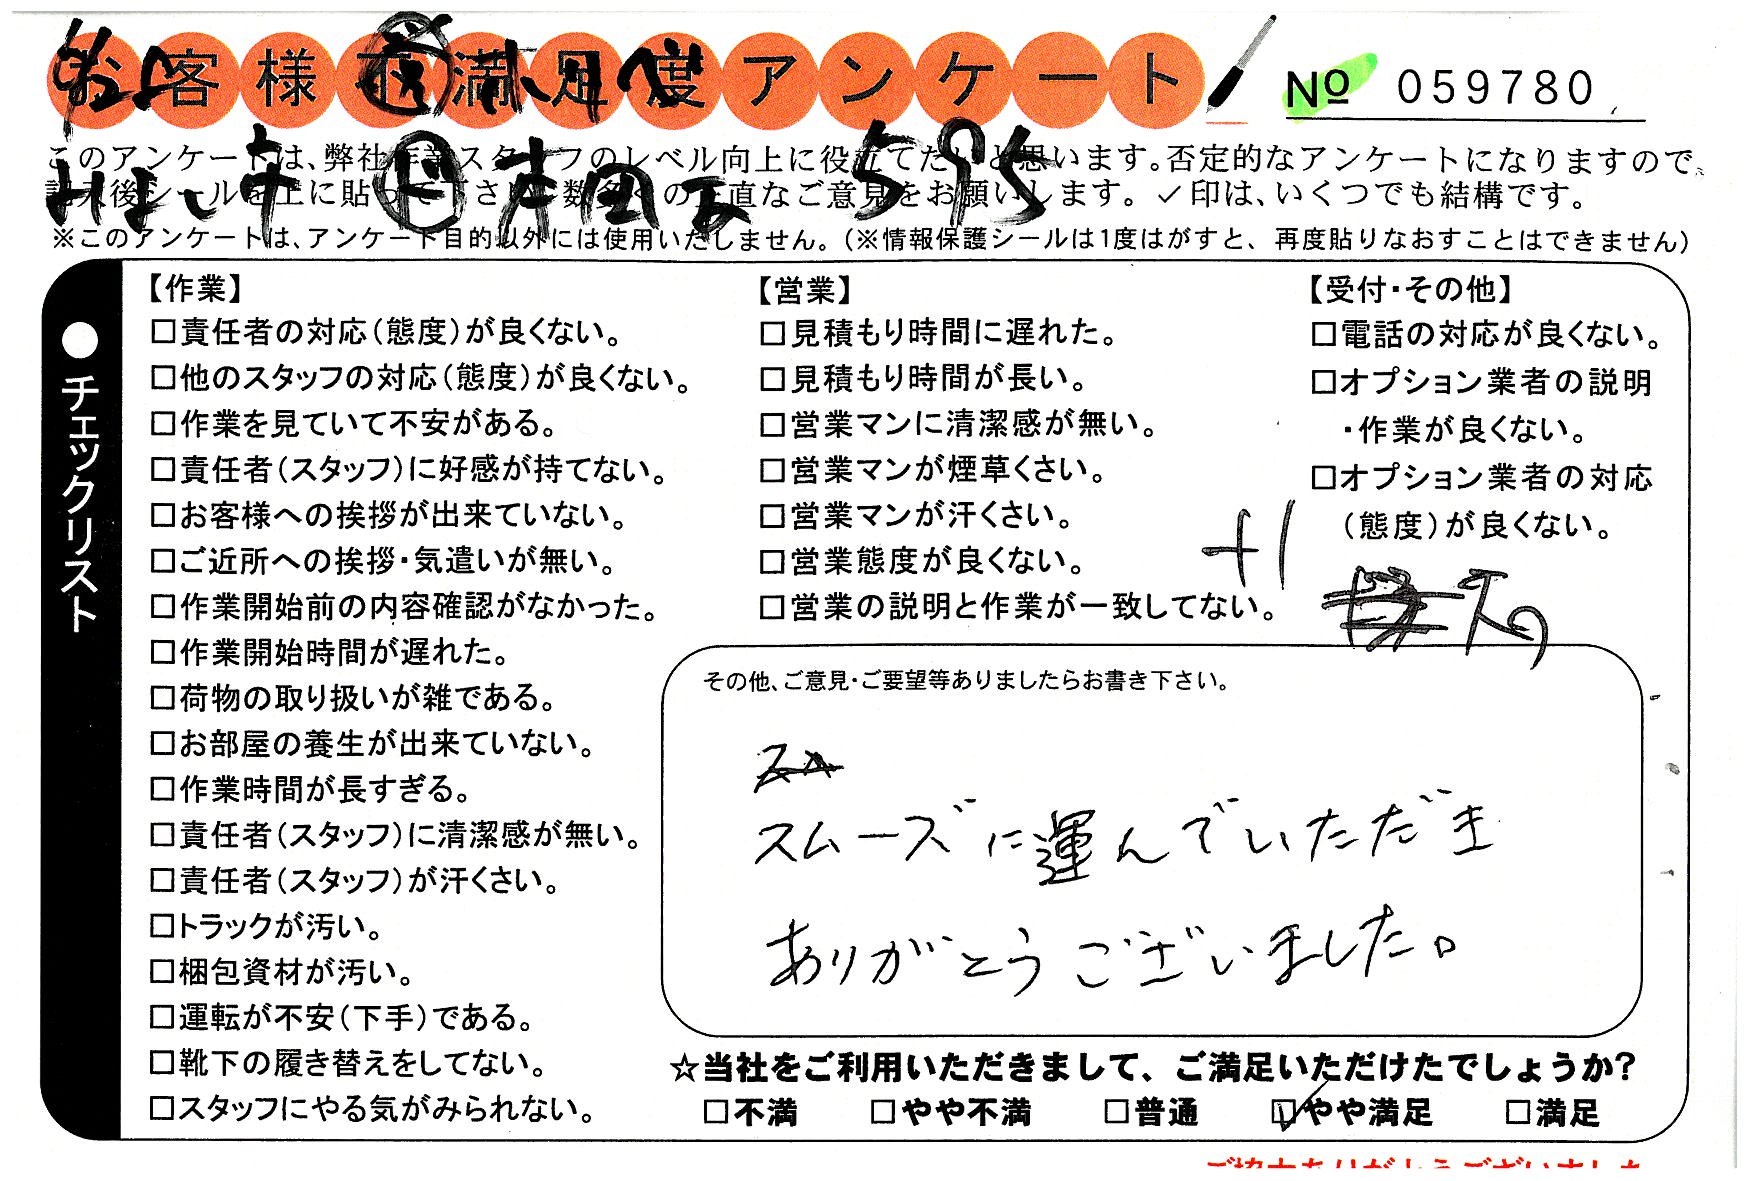 お客様不満足度アンケート
№ 059780
このアンケートは、弊社作業スタッフのレベル向上に役立てたいと思います。否定的なアンケートになりますので、
記入後シールを上に貼って下さい。数多くの正直なご意見をお願いします。✓印は、いくつでも結構です。
※このアンケートは、アンケート目的以外には使用いたしません。（※情報保護シールは1度はがすと、再度貼りなおすことはできません）
595
●チェックリスト
【作業】
□責任者の対応（態度）が良くない。
□他のスタッフの対応（態度）が良くない。
□作業を見ていて不安がある。
□責任者（スタッフ）に好感が持てない。
□お客様への挨拶が出来ていない。
□ご近所への挨拶・気遣いが無い。
□作業開始前の内容確認がなかった。
□作業開始時間が遅れた。
□荷物の取り扱いが雑である。
□お部屋の養生が出来ていない。
□作業時間が長すぎる。
□責任者（スタッフ）に清潔感が無い。
□責任者（スタッフ）が汗くさい。
□トラックが汚い。
□梱包資材が汚い。
□運転が不安（下手）である。
□靴下の履き替えをしてない。
□スタッフにやる気がみられない。
【営業】
□見積もり時間に遅れた。
□見積もり時間が長い。
□営業マンに清潔感が無い。
□営業マンが煙草くさい。
□営業マンが汗くさい。
□営業態度が良くない。
□営業の説明と作業が一致してない。
【受付・その他】
□電話の対応が良くない。
□オプション業者の説明
・作業が良くない。
□オプション業者の対応
（態度）が良くない。
+1
その他、ご意見・ご要望等ありましたらお書き下さい。
スムーズに運んでいただき
ありがとうございました。
☆当社をご利用いただきまして、ご満足いただけたでしょうか?
□不満 □やや不満 □普通 ☑やや満足 □満足
ご協力ありがとうございました